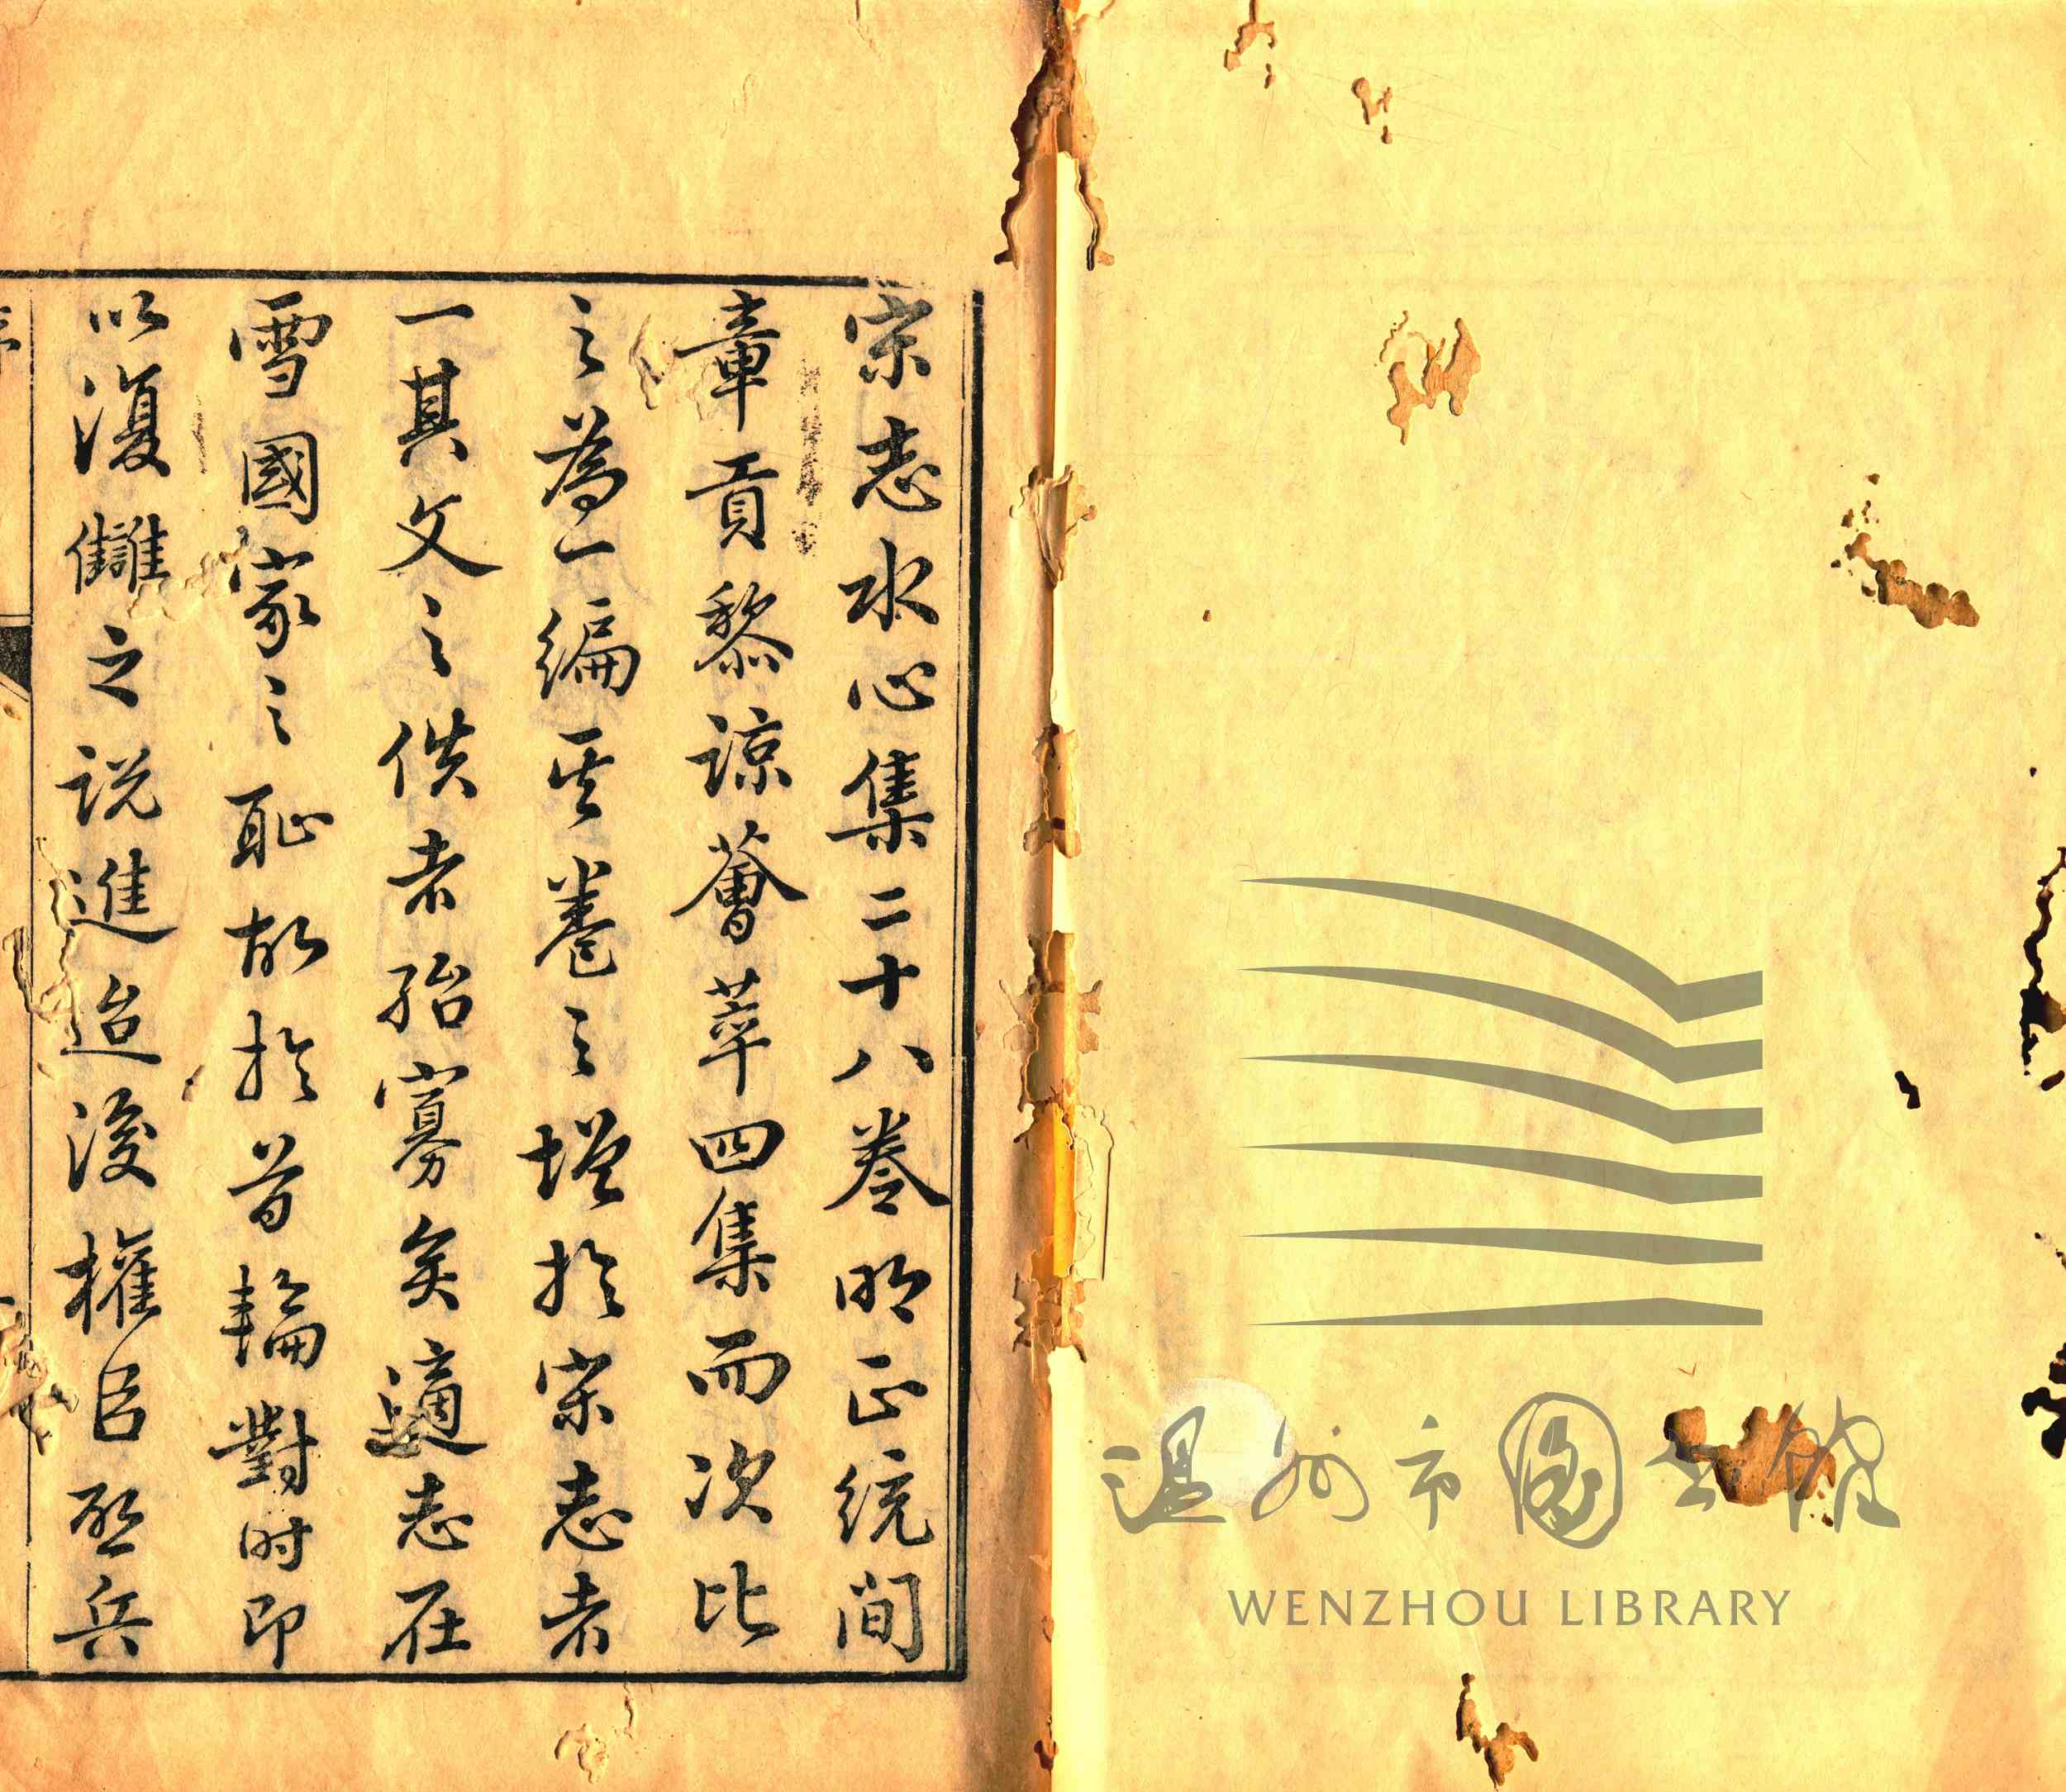 宋志水心集二十八卷明正統間
章貢黎諒薈萃四集而次比
之為一編其卷之增於宋志者
一其文之佚者殆寡矣適志在
雪國家之恥故於昔輪對時即
以復讎之說進迨後權臣啓兵
温州市图书馆
WENZHOU LIBRARY